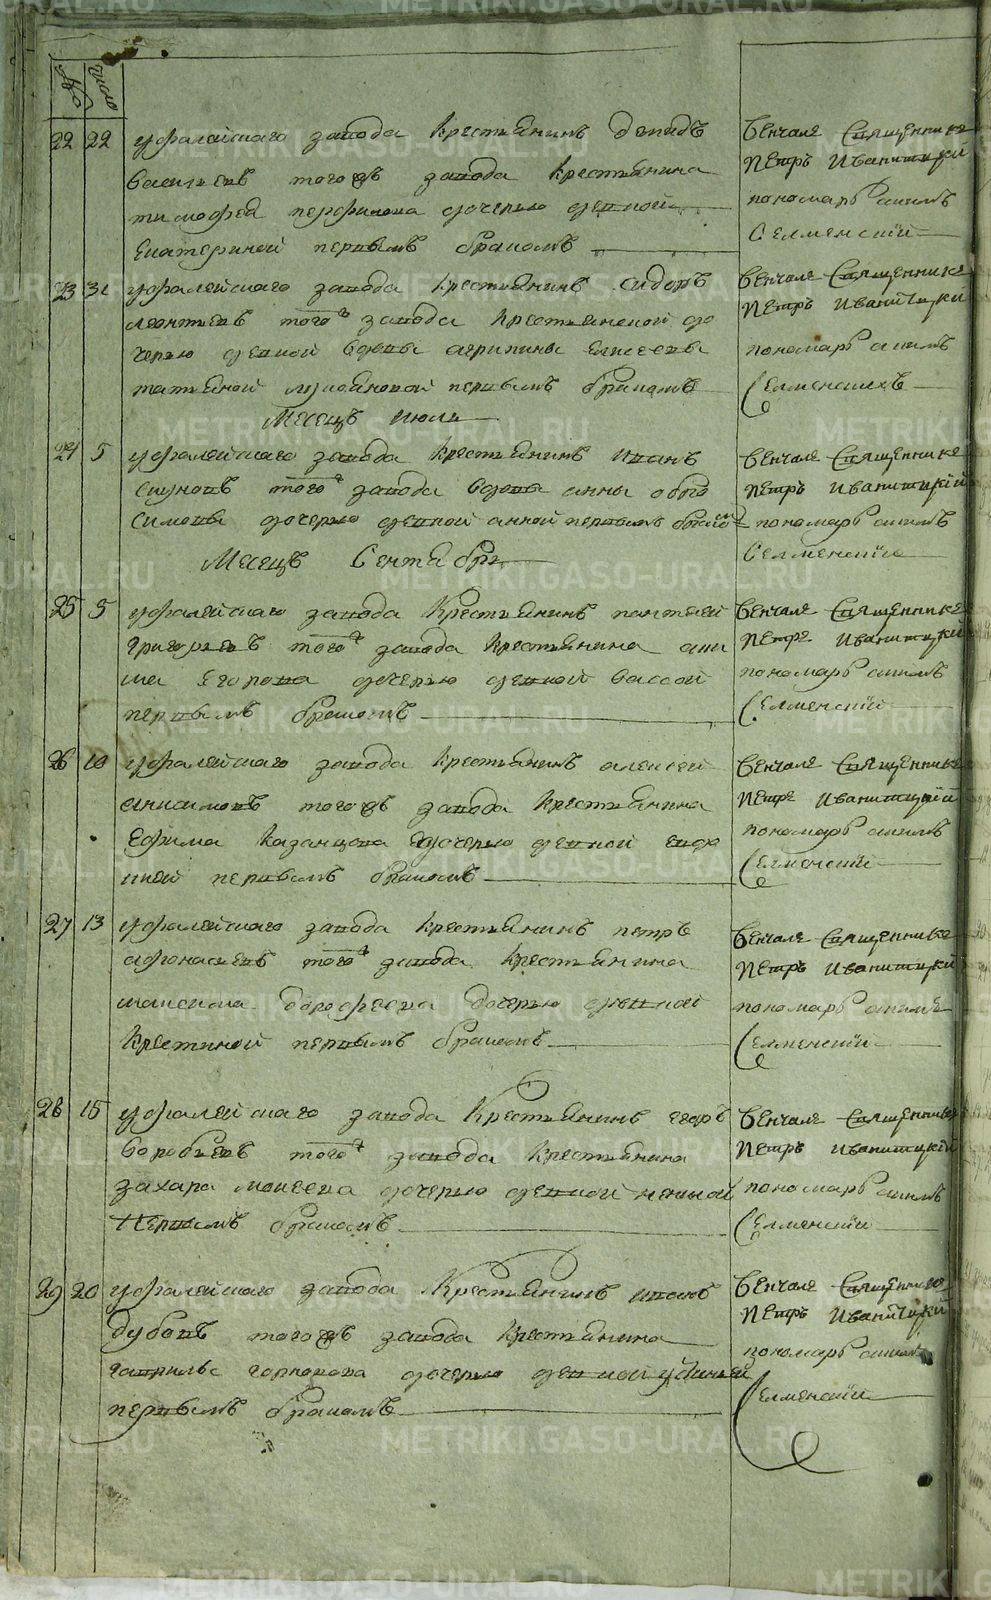 № число
22 22 уфалейскаго завода крестьянинъ давидъ
васильевъ тогожъ завода крестьянина
тимофея перфилова дочерью девкой
екатериной первымъ бракомъ
венчале священникъ
петръ иваницкий
пономарь акимъ
селменский
23 31 уфалейскаго завода крестьянинъ сидоръ
леонтьевъ тогожъ завода крестьянской до
черью девкой вдовы агрипины елисеевы
татьяной первымъ бракомъ
венчале священникъ
петръ иваницкий
пономарь акимъ
селменскихъ
Месецъ июль
24 5 уфалейскаго завода крестьянинъ иванъ
тогожъ завода вдовы анны
симоновы дочерью девкой анной первымъ бракомъ
венчале священникъ
петръ иваницкий
пономарь акимъ
селменский
Месецъ Сентябрь
25 5 уфалейскаго завода крестьянинъ пантелей
григорьевъ тогожъ завода крестьянина аки
ма егорова дочерью девкой вассой
первымъ бракомъ
венчале священникъ
петръ иваницкий
пономарь акимъ
селменский
26 10 уфалейскаго завода крестьянинъ алексей
анисимовъ тогожъ завода крестьянина
ефима казанцова дочерью девкой евдо
кией первымъ бракомъ
венчале священникъ
петръ иваницкий
пономарь акимъ
селменский
27 13 уфалейскаго завода крестьянинъ петръ
афонасьевъ тогожъ завода крестьянина
максима дорофеева дочерью девкой
крестиной первымъ бракомъ
венчале священникъ
петръ иваницкий
пономарь акимъ
селменский
28 15 уфалейскаго завода крестьянинъ егоръ
воробьевъ тогожъ завода крестьянина
захара моисеева дочерью девкой
первымъ бракомъ
венчале священникъ
петръ иваницкий
пономарь акимъ
селменский
29 20 уфалейскаго завода крестьянинъ иванъ
дубовъ тогожъ завода крестьянина
гаврилы дочерью девкой
первымъ бракомъ
венчале священникъ
петръ иваницкий
пономарь акимъ
селменский
METRIKI.GASO-URAL.RU